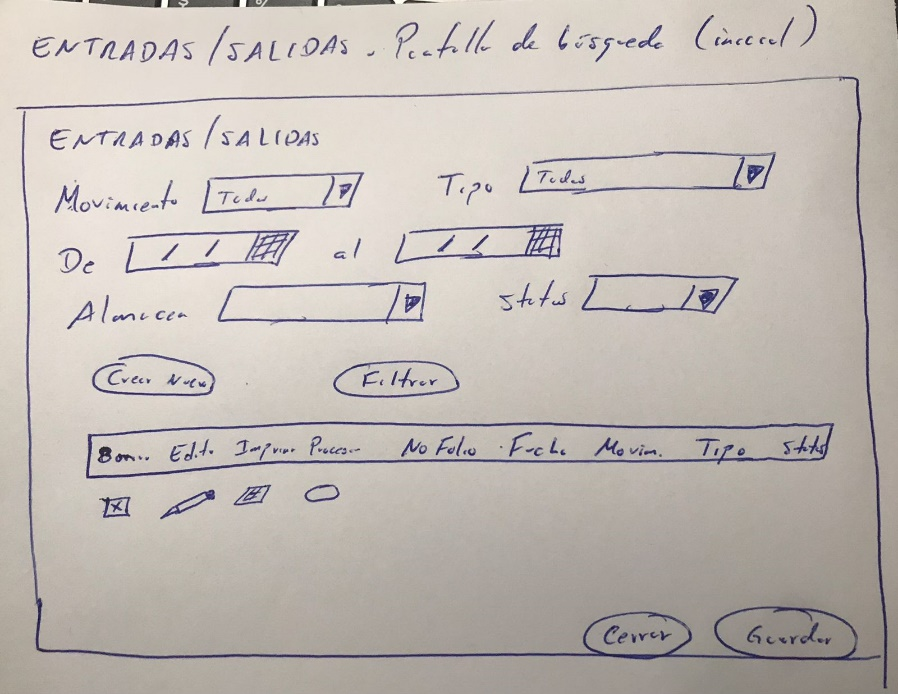 ENTRADAS/SALIDAS. Pantalla de búsqueda (inicial)
ENTRADAS/SALIDAS
Movimiento Todos Tipo Todos
De / / al / /
Almacen Status
Crear Nuevo Filtrar
Borrar Editar Imprimir Procesar No Folio Fecha Movim. Tipo Status
Cerrar Guardar